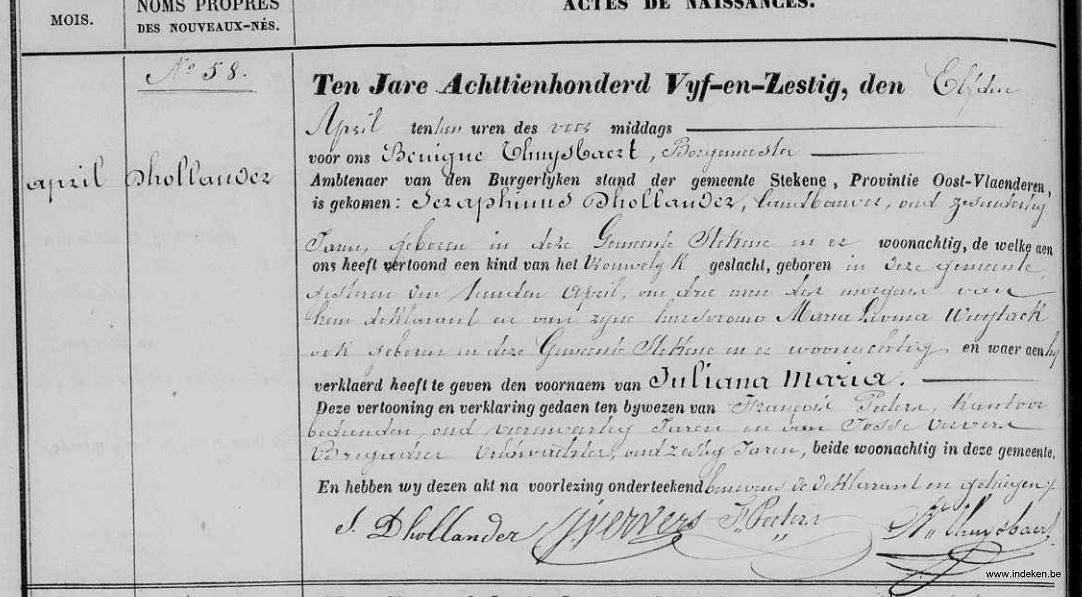 MOIS.
NOMS PROPRES
DES NOUVEAUX-NÉS.
ACTES DE NAISSANCES.
April
Dhollander
N° 58.
Ten Jare Achttienhonderd Vyf-en-Zestig, den Elfden
April ten tien uren des voor middags
voor ons Benigne Thuysbaert, Borgemeester
Ambtenaer van den Burgerlyken stand der gemeente Stekene, Provintie Oost-Vlaenderen,
is gekomen: Seraphinus Dhollander, landbouwer, oud
Jaren, geboren in deze Gemeente Stekene en er woonachtig, de welke aen
ons heeft vertoond een kind van het Vrouwelyk geslacht, geboren in deze gemeente
April, om drie uren des morgens van
hem deklarant en van zyne huisvrouw Maria Livina Wuytack
ook geboren in deze Gemeente Stekene en er woonachtig, en waer aen hy
verklaerd heeft te geven den voornaem van Juliana Maria.
Deze vertooning en verklaring gedaen ten bywezen van François Peeters, kantoor
bedienden, oud Jaren en van Josse Ververs
Brigadier Veldwachter, oud zestig Jaren, beide woonachtig in deze gemeente.
En hebben wy dezen akt na voorlezing onderteekend benevens de deklarant en getuigen
S. Dhollander J Ververs F. Peeters Bn Thuysbaert
www.indeken.be